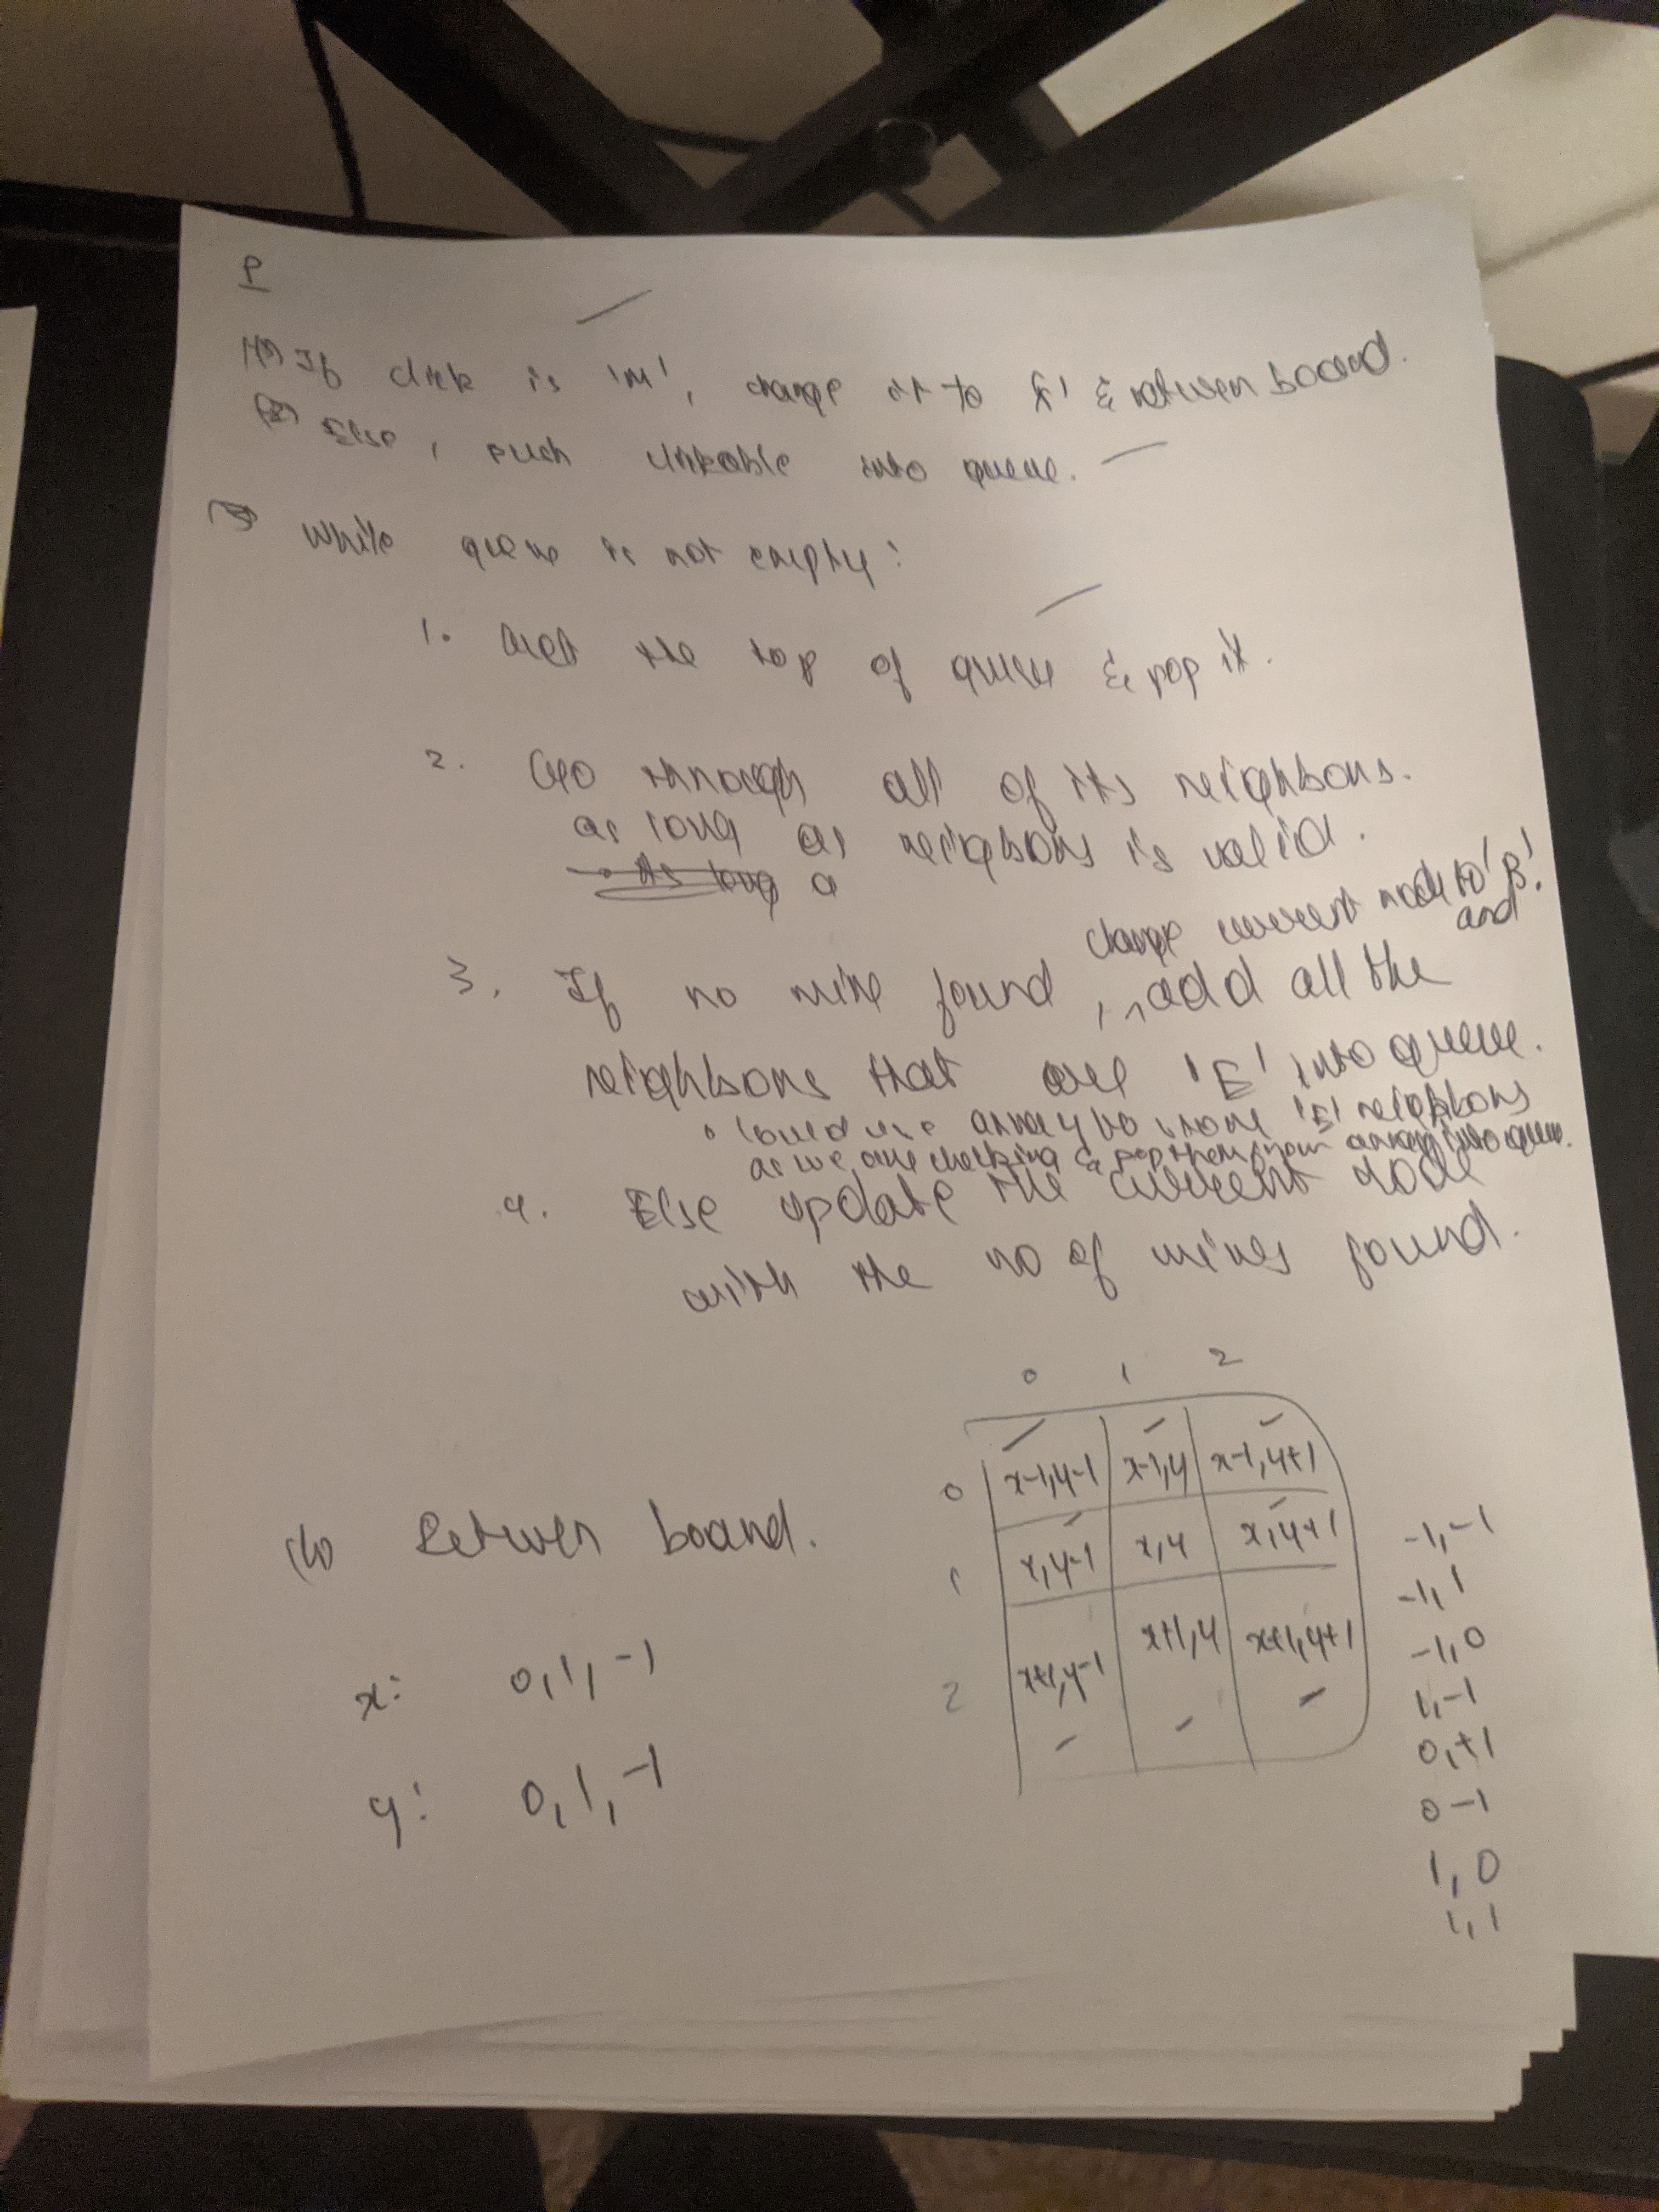 P
(1) If click is 'M', change it to 'X' & return board.
(2) Else, push clickable into queue.
(3) While queue is not empty:
1. Get the top of queue & pop it.
2. Go through all of its neighbors.
as long as neighbors is valid.
As long a
change current node to 'B'.
and
3. If no mine found, add all the
neighbors that are 'E' into queue.
• Could use array to store 'E' neighbors
as we are checking & pop them from array into queue.
4. Else update the current node
with the no of mines found.
0 1 2
0 x-1,y-1 x-1,y x-1,y+1
1 x,y-1 x,y x,y+1
2 x+1,y-1 x+1,y x+1,y+1
(4) Return board.
x: 0,1,-1
y: 0,1,-1
-1,-1
-1,1
-1,0
1,-1
0,+1
0 -1
1,0
1,1